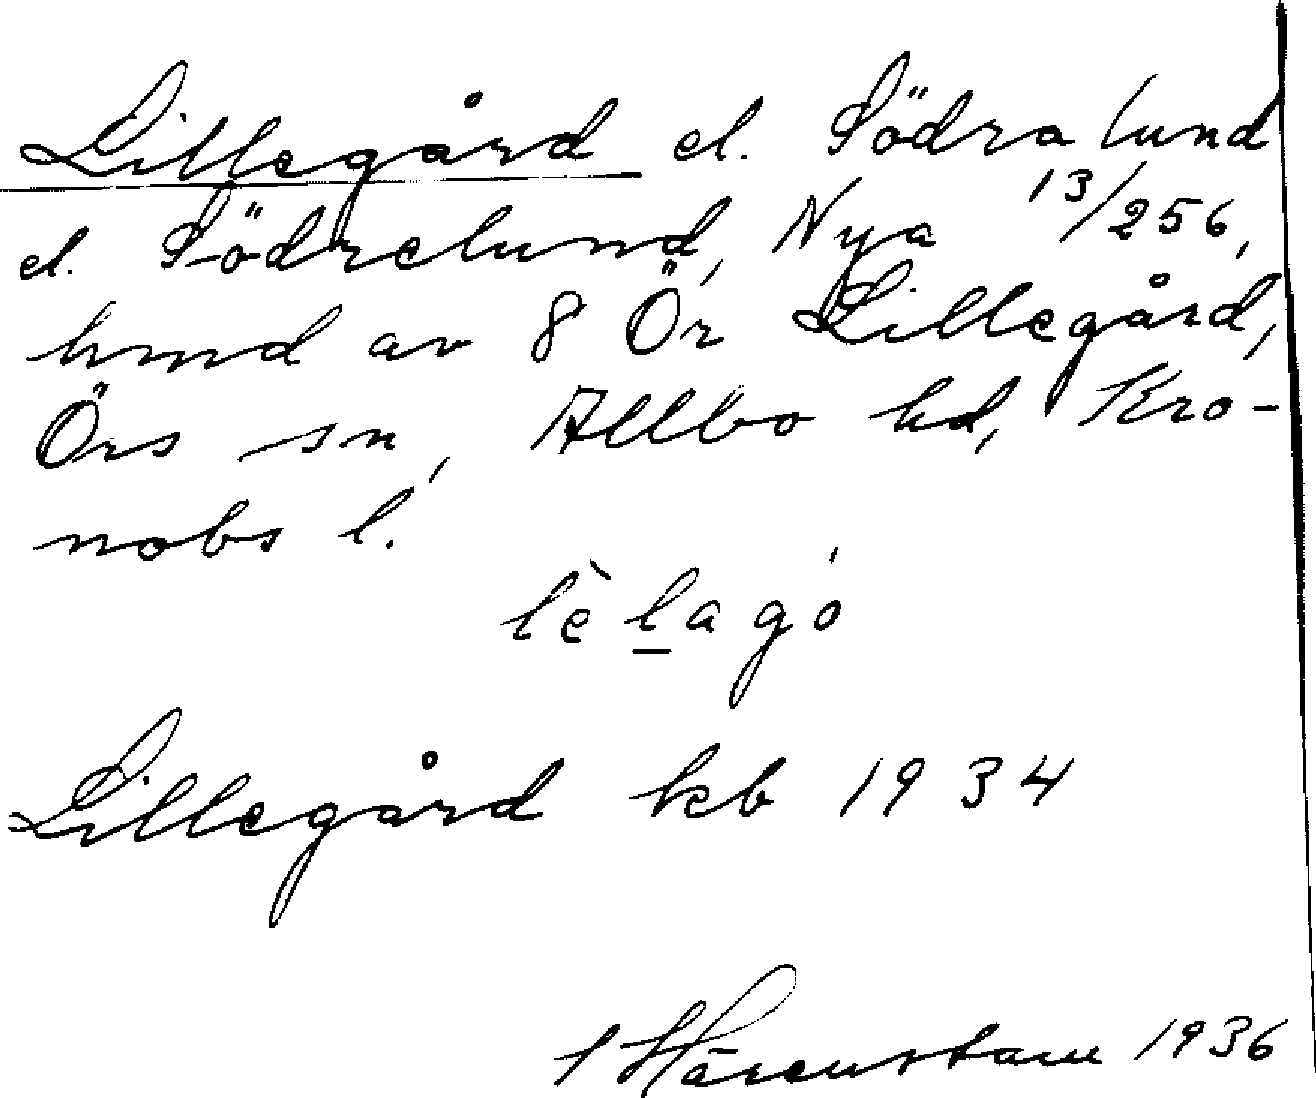 Lillegård el. Södra lund
el. Södrelund, Nya 13/256,
hmd av 8 Ör Lillegård,
Örs sn, Allbo hd, Kro-
nobs l.
lèlagó
Lillegård kb 1934
Hårenstam 1936